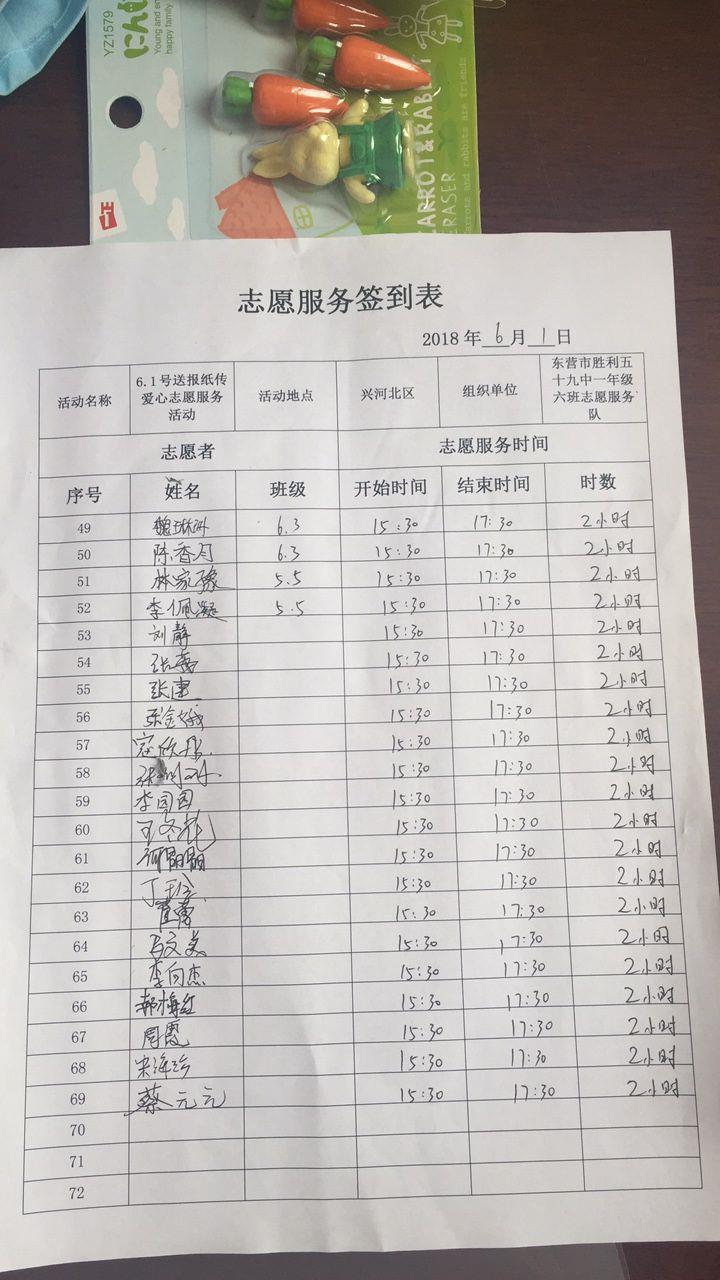 YZ1579
にんじ
Young and en
happy family.
CARROT & RABBIT
ERASER
carrots and rabbits are friends
志愿服务签到表
2018 年 6 月 1 日
活动名称 6.1号送报纸传爱心志愿服务活动 活动地点 兴河北区 组织单位 东营市胜利五十九中一年级六班志愿服务队
志愿者 志愿服务时间
序号 姓名 班级 开始时间 结束时间 时数
49 6.3 15:30 17:30 2小时
50 陈香月 6.3 15:30 17:30 2小时
51 林家豫 5.5 15:30 17:30 2小时
52 李佩凝 5.5 15:30 17:30 2小时
53 刘静 15:30 17:30 2小时
54 15:30 17:30 2小时
55 15:30 17:30 2小时
56 张金娥 15:30 17:30 2小时
57 15:30 17:30 2小时
58 15:30 17:30 2小时
59 李园园 15:30 17:30 2小时
60 王冬花 15:30 17:30 2小时
61 15:30 17:30 2小时
62 15:30 17:30 2小时
63 15:30 17:30 2小时
64 15:30 17:30 2小时
65 李向杰 15:30 17:30 2小时
66 郝梅红 15:30 17:30 2小时
67 周霞 15:30 17:30 2小时
68 宋海珍 15:30 17:30 2小时
69 蔡元元 15:30 17:30 2小时
70
71
72